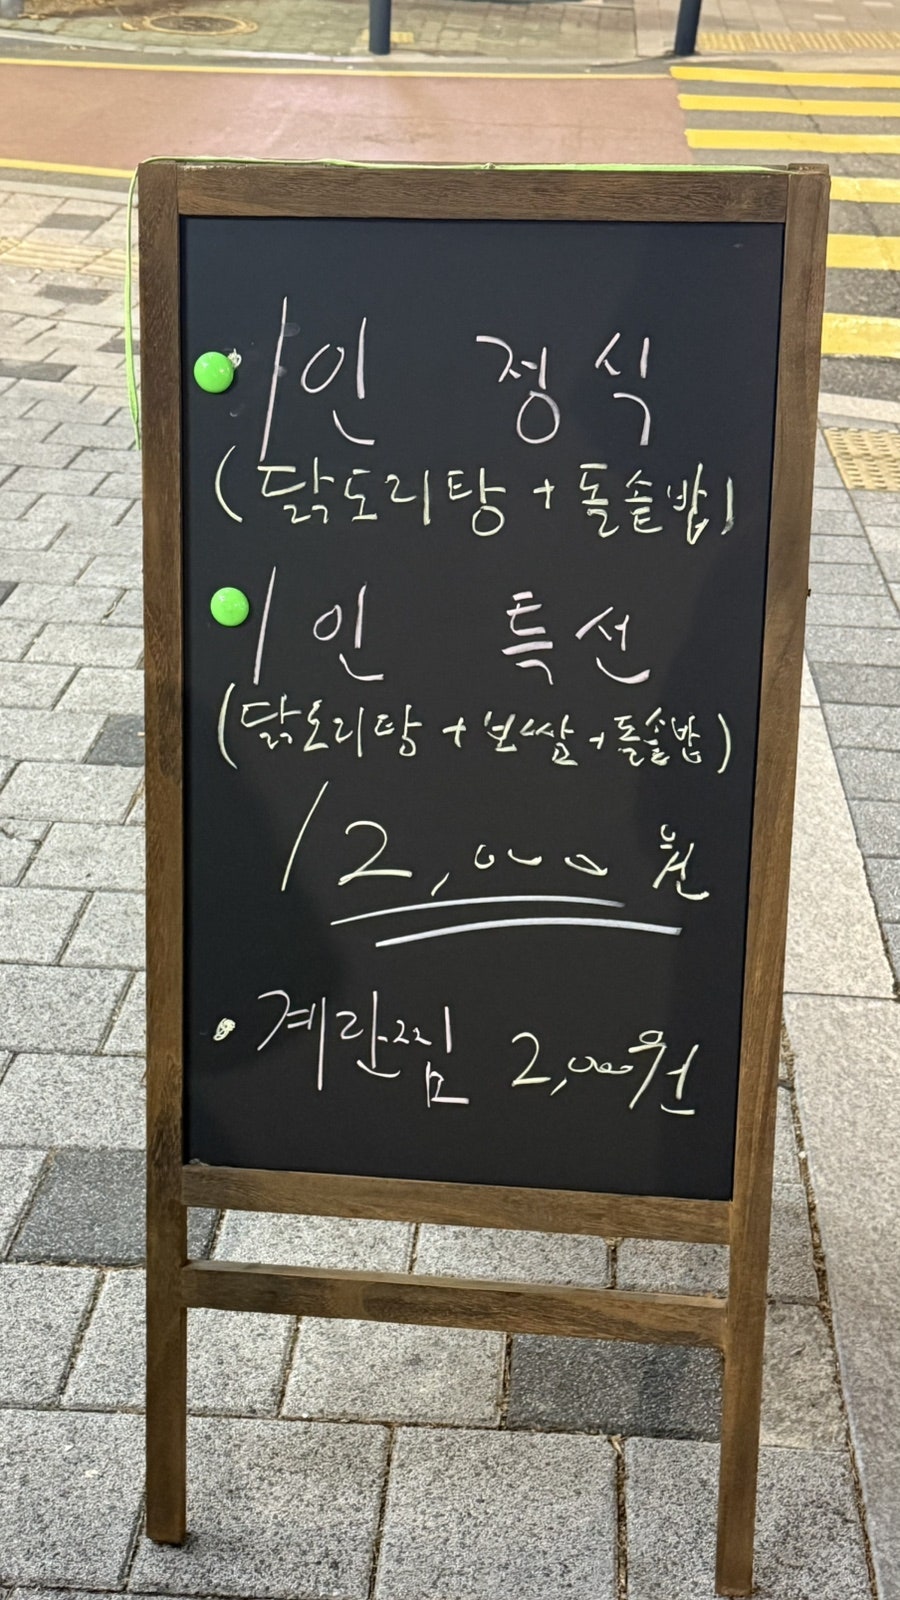 1인 정식
(닭도리탕 + 돌솥밥)
1인 특선
(닭도리탕 + 보쌈 + 돌솥밥)
12,000 원
· 계란찜 2,000원